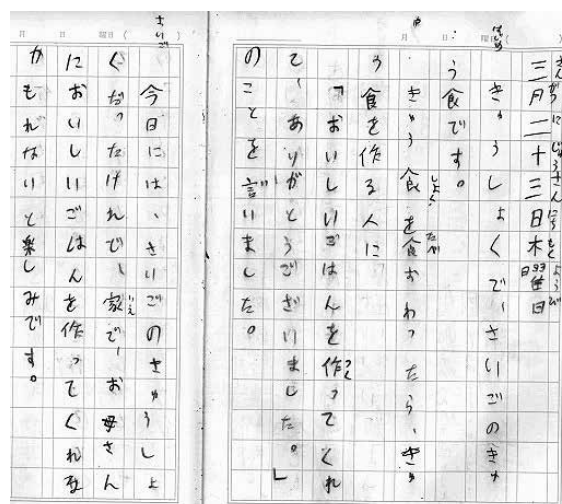 はじめ
三月二十三日木曜日
きゅうしょくで、さいごのきゅ
う食です。
中
きゅう食を食おわったら、きゅ
う食を作る人に
「おいしいごはんを作ってくれ
て、ありがとうございました。」
のことを言いました。
さいご
今日には、さいごのきゅうしょ
くだったけれで、家で、お母さん
においしいごはんを作ってくれ
かもれないと楽しみです。